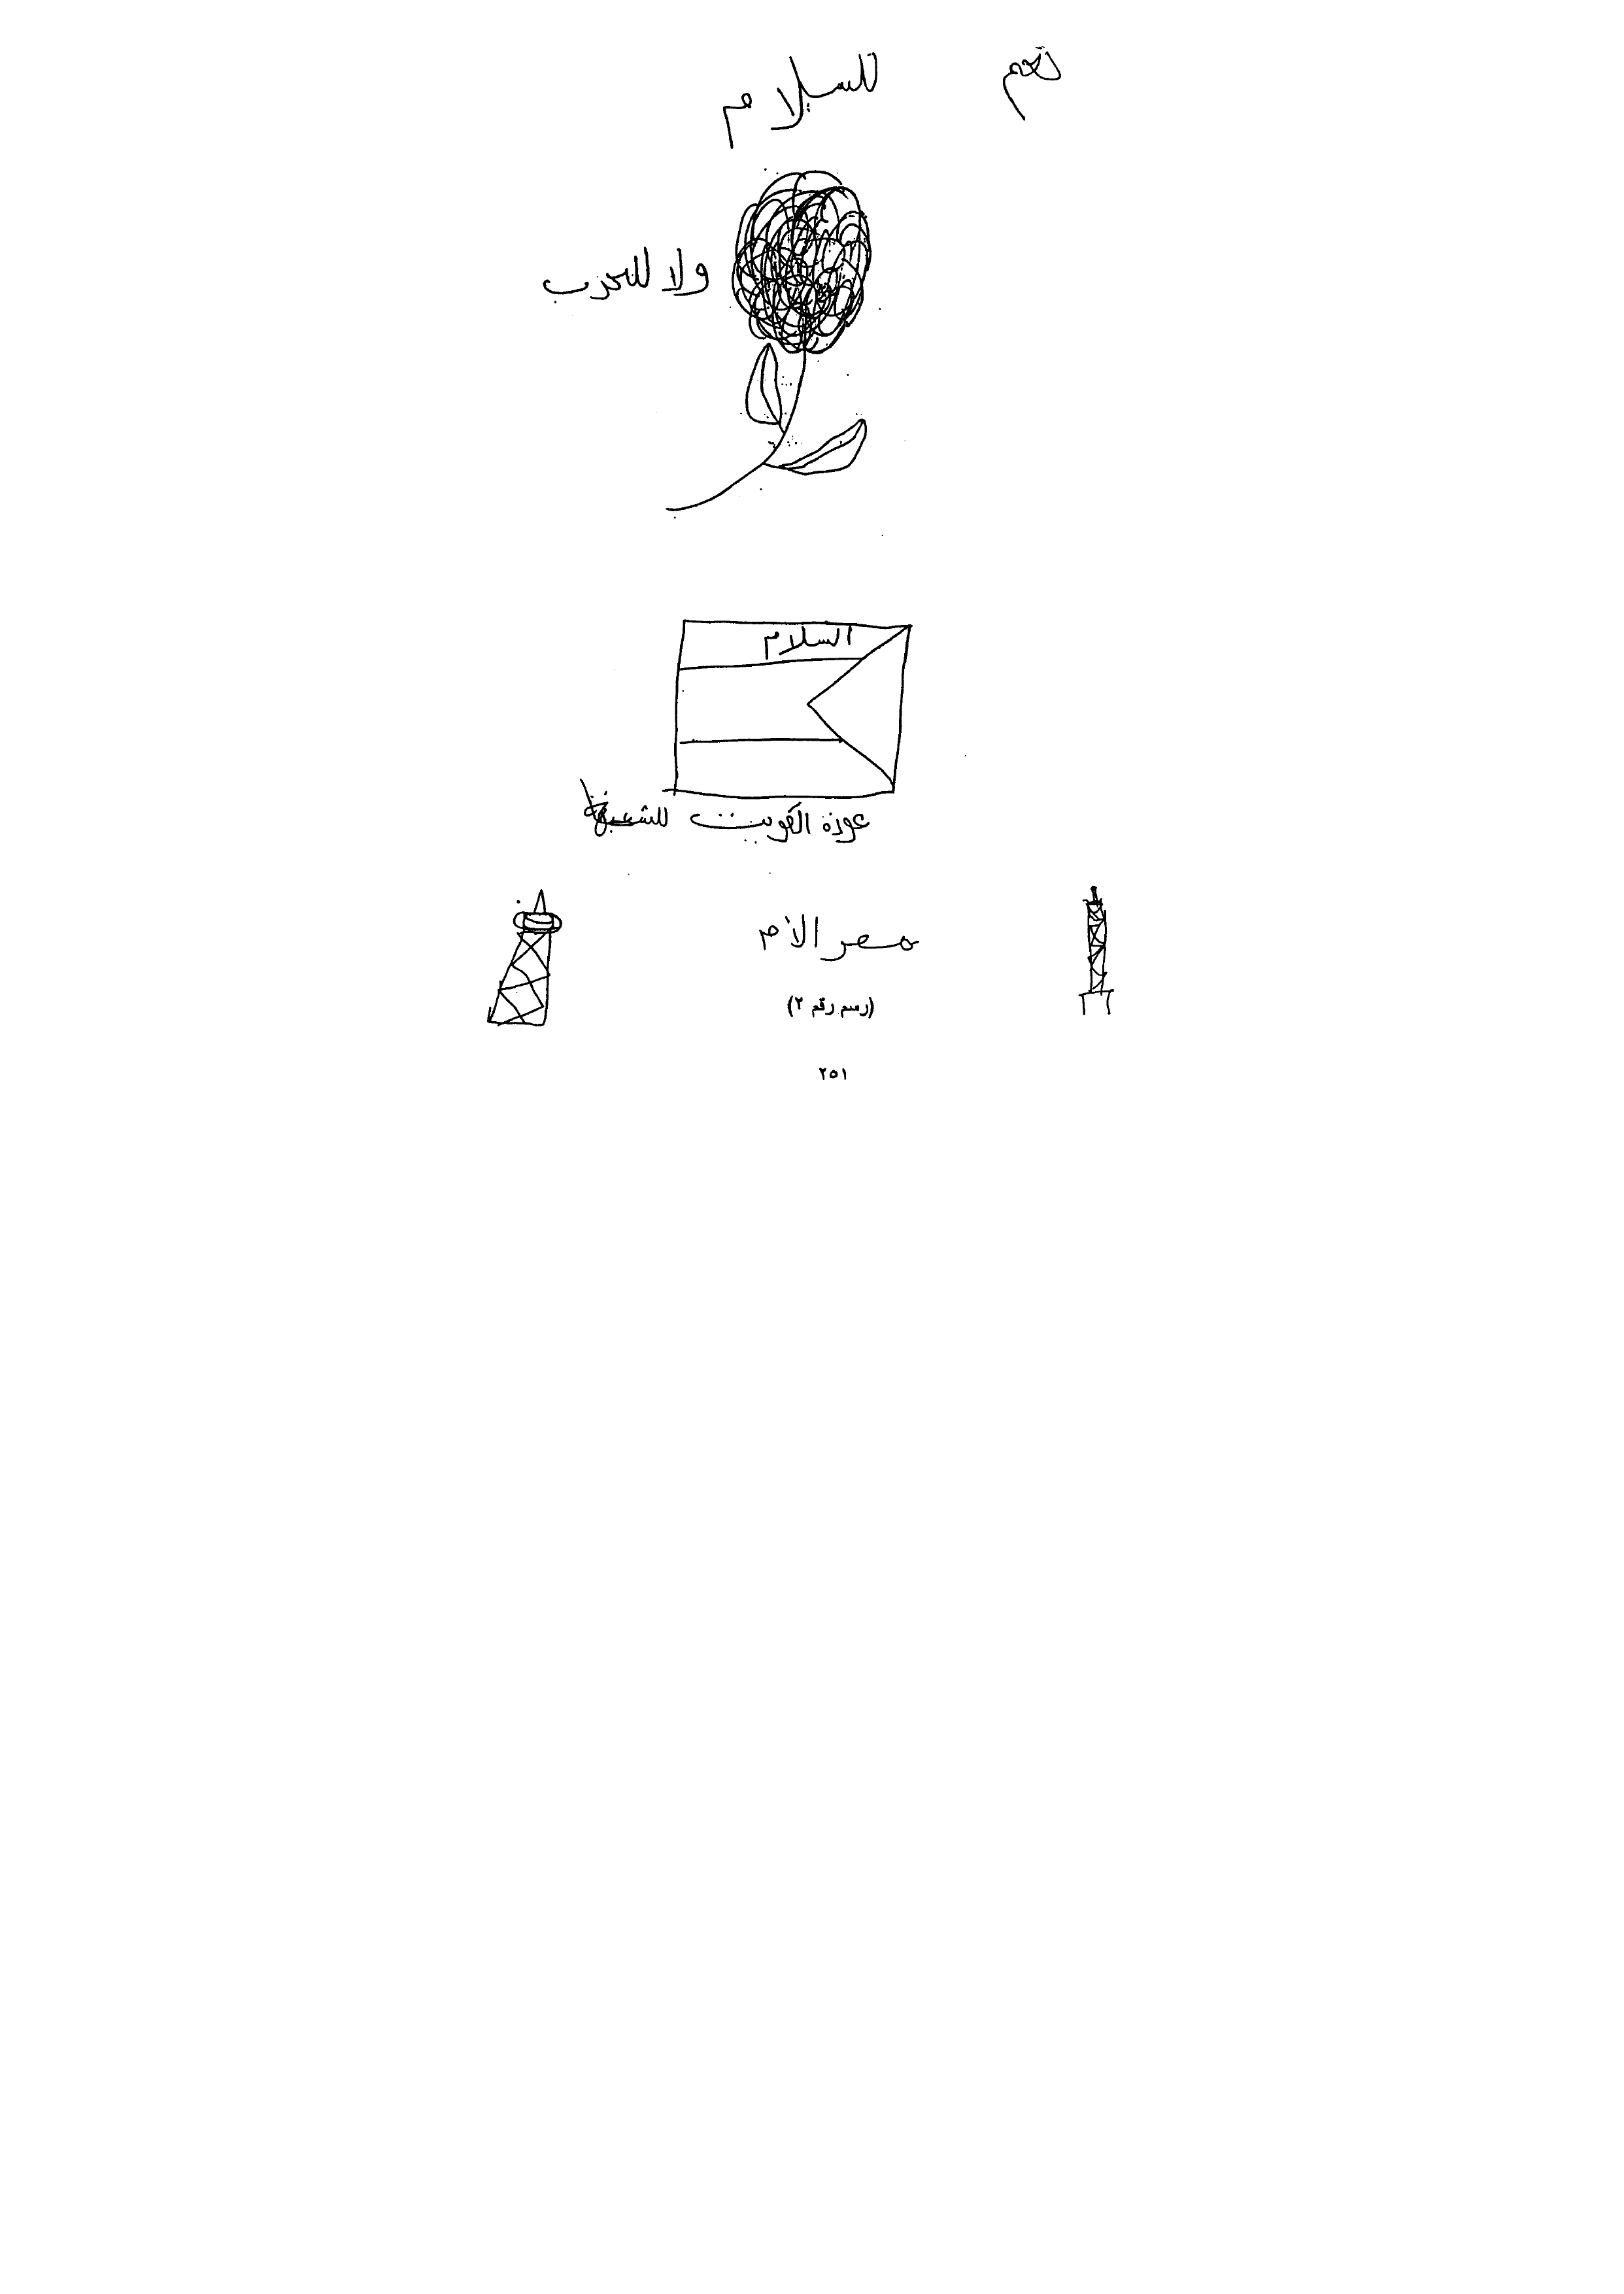 نعم للسلام
ولا للحرب
السلام
عودة الكويت
مصر الأم
(رسم رقم ٢)
٢٥١